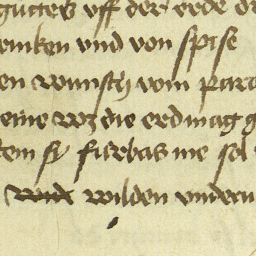 guttes vff der erde
trinken vnd von spise
en wunsch vom para
eine wz die erd mag g
tem sy furbas me sol
wilden vndern